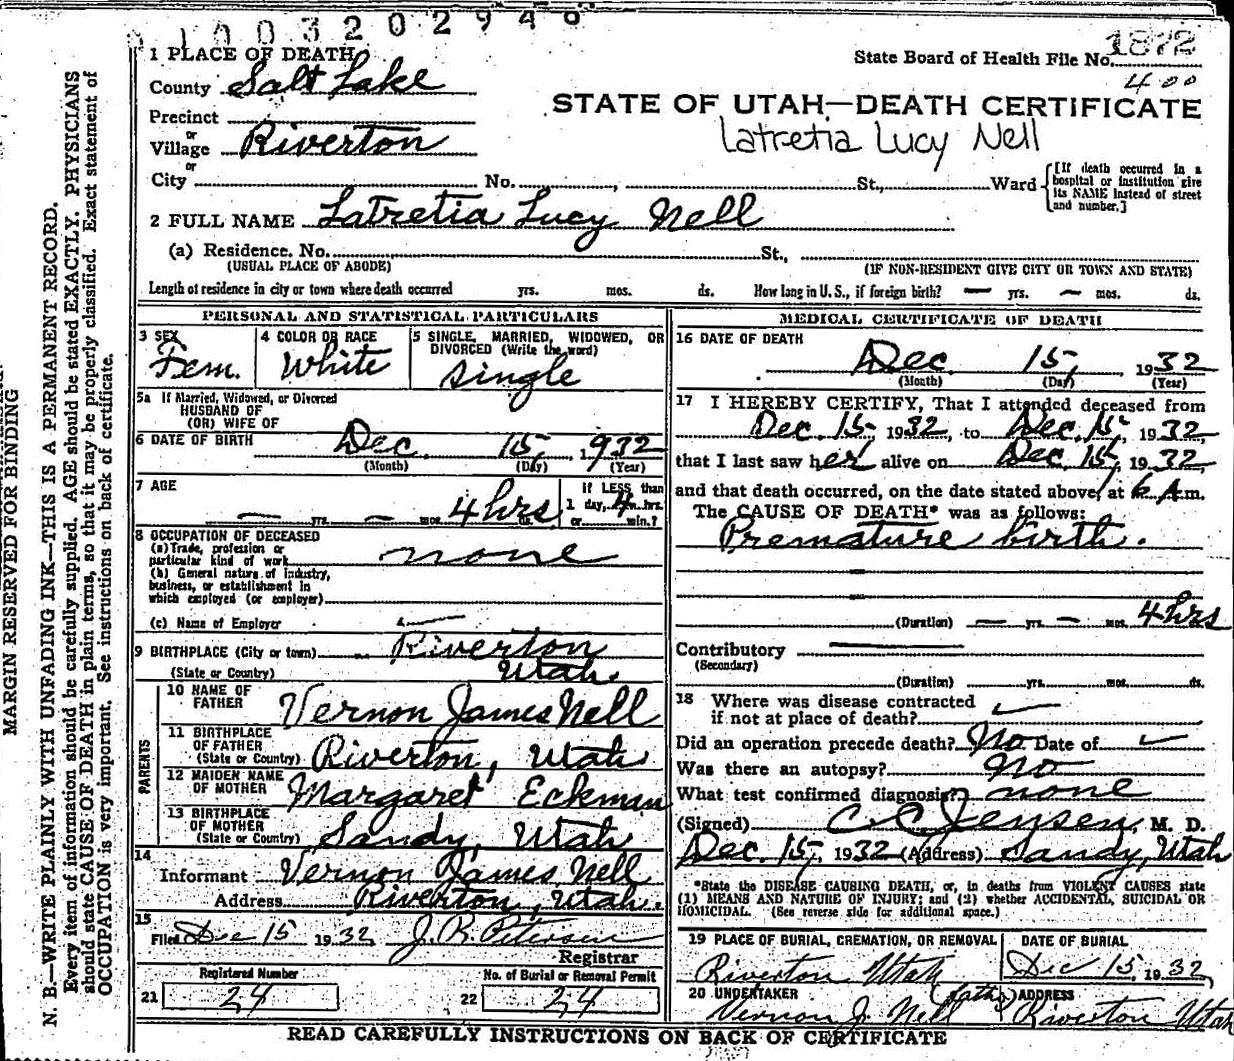 1003202940
1 PLACE OF DEATH
State Board of Health File No. 1872
County Salt Lake
400
STATE OF UTAH—DEATH CERTIFICATE
Precinct
or
Village Riverton
Latretia Lucy Nell
or
City No. , St., Ward
[If death occurred in a hospital or institution give its NAME instead of street and number.]
2 FULL NAME Latretia Lucy Nell
(a) Residence. No. St.,
(USUAL PLACE OF ABODE) (IF NON-RESIDENT GIVE CITY OR TOWN AND STATE)
Length of residence in city or town where death occurred yrs. mos. ds. How long in U. S., if foreign birth? — yrs. — mos. ds.
PERSONAL AND STATISTICAL PARTICULARS
3 SEX Fem.
4 COLOR OR RACE White
5 SINGLE, MARRIED, WIDOWED, OR DIVORCED (Write the word) single
5a If Married, Widowed, or Divorced
HUSBAND OF
(OR) WIFE OF
6 DATE OF BIRTH Dec. 15, 1932
(Month) (Day) (Year)
7 AGE — yrs. — mos. 4 hrs ds.
If LESS than
1 day, 4 hrs.
or min.?
8 OCCUPATION OF DECEASED
(a) Trade, profession or
particular kind of work none
(b) General nature of industry,
business, or establishment in
which employed (or employer)
(c) Name of Employer
9 BIRTHPLACE (City or town) Riverton
(State or Country) Utah.
PARENTS
10 NAME OF FATHER Vernon James Nell
11 BIRTHPLACE OF FATHER
(State or Country) Riverton, Utah
12 MAIDEN NAME OF MOTHER Margaret Eckman
13 BIRTHPLACE OF MOTHER
(State or Country) Sandy, Utah
14
Informant Vernon James Nell
Address Riverton, Utah.
15
Filed Dec 15 1932 J. R. Petersen
Registrar
Registered Number No. of Burial or Removal Permit
21 24 22 24
MEDICAL CERTIFICATE OF DEATH
16 DATE OF DEATH
Dec 15, 1932
(Month) (Day) (Year)
17 I HEREBY CERTIFY, That I attended deceased from
Dec. 15, 1932, to Dec. 15, 1932,
that I last saw her alive on Dec. 15, 1932,
and that death occurred, on the date stated above, at 6 A.m.
The CAUSE OF DEATH* was as follows:
Premature birth.
(Duration) — yrs. — mos. 4 hrs
Contributory
(Secondary)
(Duration) yrs. mos. ds.
18 Where was disease contracted
if not at place of death?
Did an operation precede death? No Date of
Was there an autopsy? no
What test confirmed diagnosis? none
(Signed) C. C. Jensen, M. D.
Dec. 15, 1932 (Address) Sandy, Utah
*State the DISEASE CAUSING DEATH, or, in deaths from VIOLENT CAUSES state
(1) MEANS AND NATURE OF INJURY; and (2) whether ACCIDENTAL, SUICIDAL OR
HOMICIDAL. (See reverse side for additional space.)
19 PLACE OF BURIAL, CREMATION, OR REMOVAL DATE OF BURIAL
Riverton Utah Dec 15, 1932
20 UNDERTAKER ADDRESS
Vernon J. Nell Riverton Utah
READ CAREFULLY INSTRUCTIONS ON BACK OF CERTIFICATE
MARGIN RESERVED FOR BINDING
N. B.—WRITE PLAINLY WITH UNFADING INK—THIS IS A PERMANENT RECORD.
Every item of information should be carefully supplied. AGE should be stated EXACTLY. PHYSICIANS
should state CAUSE OF DEATH in plain terms, so that it may be properly classified. Exact statement of
OCCUPATION is very important. See instructions on back of certificate.